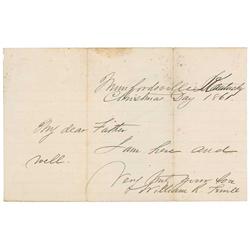 Munfordsville Kentucky
Christmas Day 1861
My dear Father
I am here and
well.
Very truly your Son
William R.